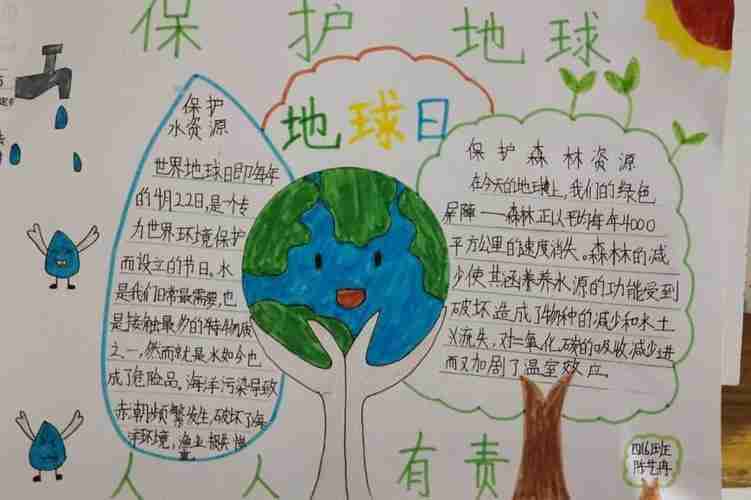 保护地球
地球日
保护
水资源
世界地球日即每年
的4月22日,是个专
为世界环境保护
而设立的节日。水
是我们日常最需要,也
是接触最多的特物质
之一,然而就是水如今也
成了危险品。海洋污染导致
赤潮频繁发生,破坏了海
洋环境,渔业损失惨
重
保护森林资源
在今天的地球上,我们的绿色
屏障——森林正以平均每年4000
平方公里的速度消失。森林的减
少使其涵养水源的功能受到
破坏,造成了物种的减少和水土
流失,对二氧化碳的吸收减少进
而又加剧了温室效应
人人有责
四(6)班
陈艺冉